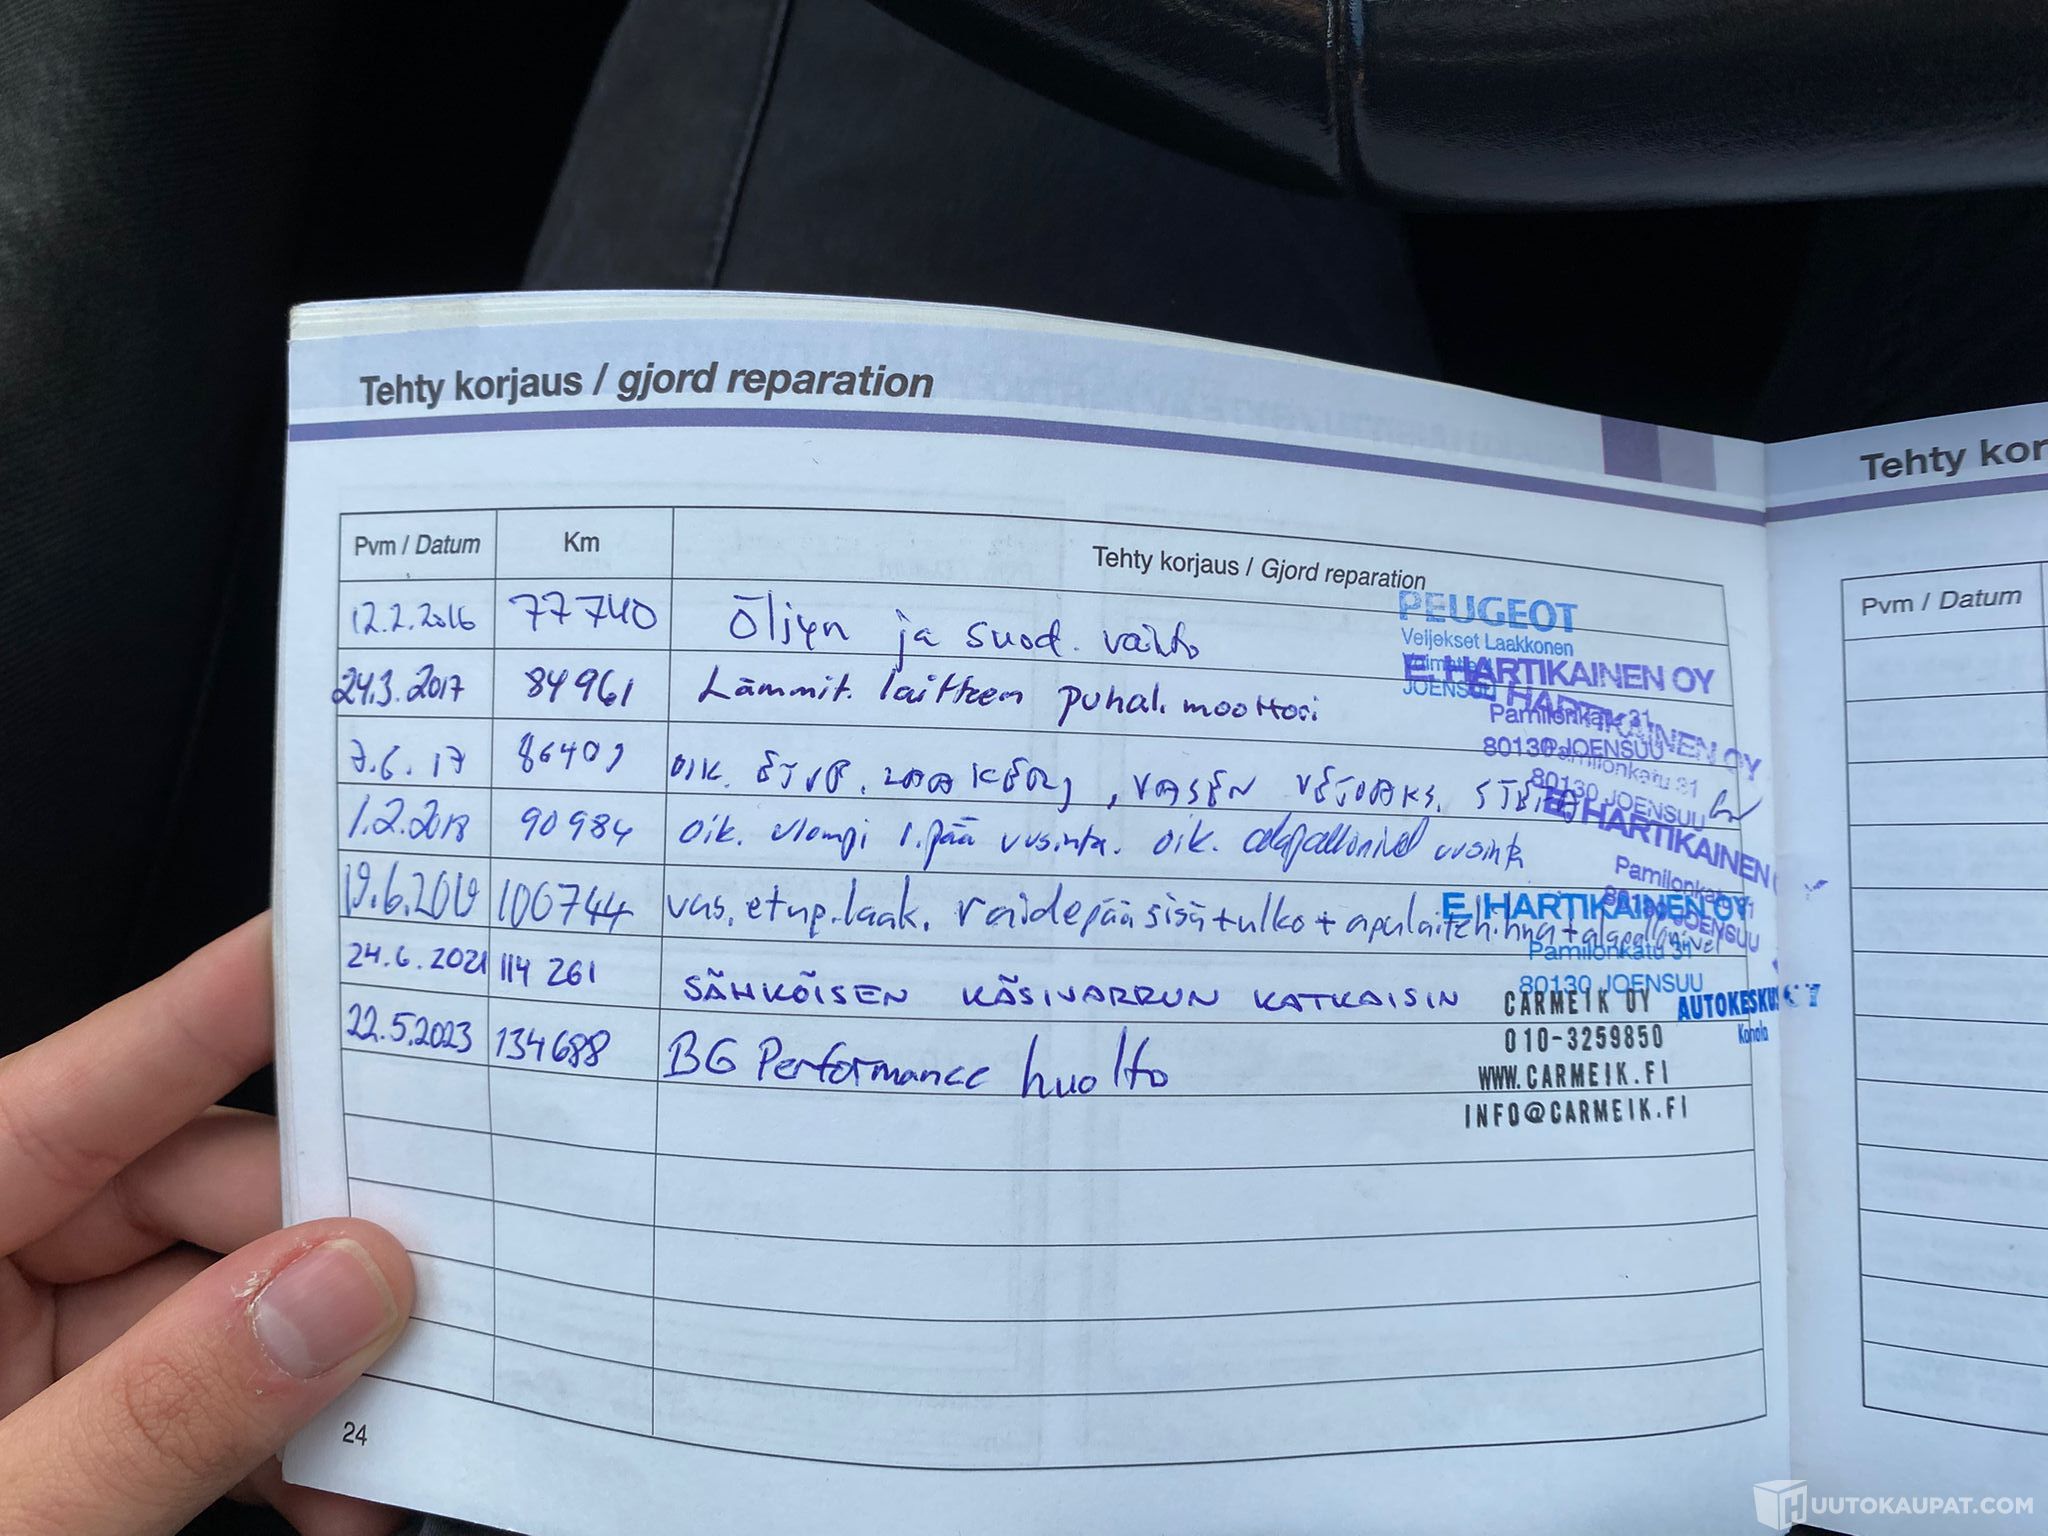 Tehty korjaus / gjord reparation
Tehty kor
Pvm / Datum Km Tehty korjaus / Gjord reparation
Pvm / Datum
12.2.2016 77740 Öljyn ja suod. vaihto
PEUGEOT
Veljekset Laakkonen
JOENSUU
24.3.2017 84961 Lämmit. laitteen puhal. moottori
E. HARTIKAINEN OY
Pamilonkatu 31
80130 JOENSUU
7.6.17 86409 OIK. ETUP. LAAKERI, VASEN VETOAKS.
E. HARTIKAINEN OY
Pamilonkatu 31
80130 JOENSUU
1.2.2018 90984 oik. ulompi r.pää uusinta. oik. alapallonivel uusinta
E. HARTIKAINEN
Pamilonkatu 31
80130 JOENSUU
19.6.2019 100744 vas. etup. laak. raidepää sisä + ulko + apulaiteh.ihna + alapallonivel
E. HARTIKAINEN OY
Pamilonkatu 31
80130 JOENSUU
24.6.2021 114 261 SÄHKÖISEN KÄSIJARRUN KATKAISIN
AUTOKESKUS OY
22.5.2023 134688 BG Performance huolto
CARMEIK OY
010-3259850
WWW.CARMEIK.FI
INFO@CARMEIK.FI
24
HUUTOKAUPAT.COM